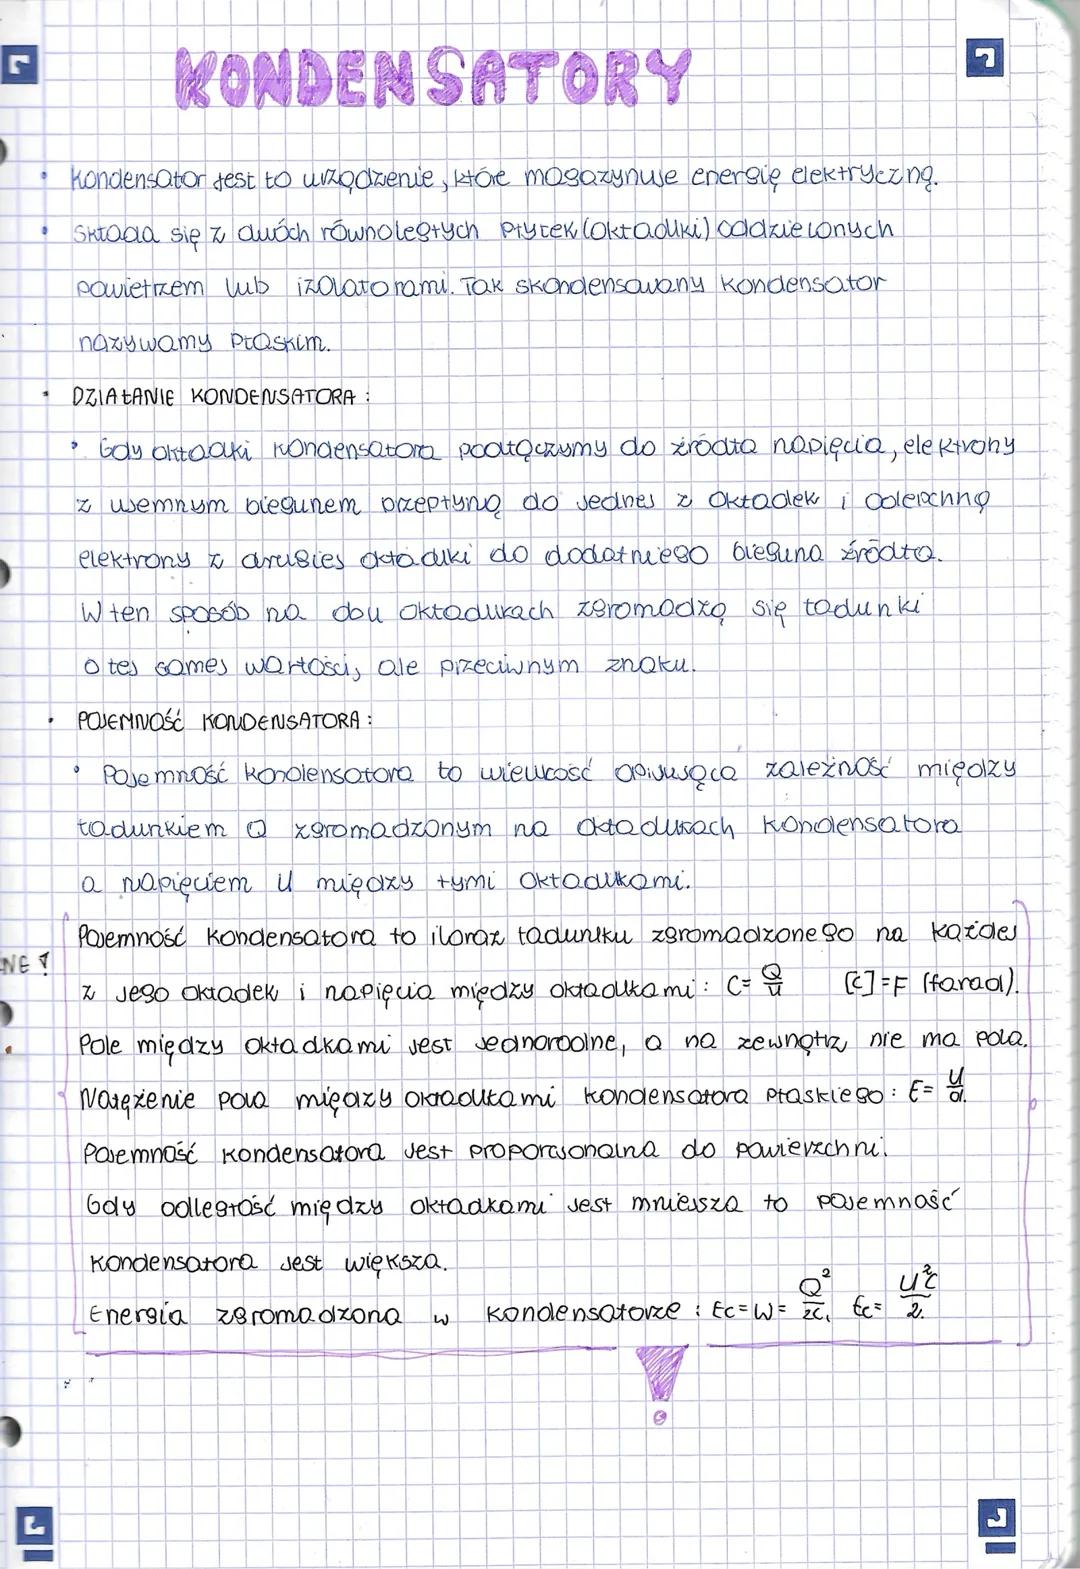 KONDENSATORY
• Kondensator jest to urządzenie, które magazynuje energię elektryczną.
• Składa się z dwóch równoległych płytek (okładki) oddzielonych
powietrzem lub izolatorami. Tak skondensowany kondensator
nazywamy płaskim.
• DZIAŁANIE KONDENSATORA:
• Gdy okładki kondensatora podłączymy do źródła napięcia, elektrony
z ujemnym biegunem przepłyną do jednej z okładek i odepchną
elektrony z drugiej okładki do dodatniego bieguna źródła.
W ten sposób na obu okładkach zgromadzą się ładunki
o tej samej wartości, ale przeciwnym znaku.
• POJEMNOŚĆ KONDENSATORA:
• Pojemność kondensatora to wielkość opisująca zależność między
ładunkiem Q zgromadzonym na okładkach kondensatora
a napięciem U między tymi okładkami.
Pojemność kondensatora to iloraz ładunku zgromadzonego na każdej
z jego okładek i napięcia między okładkami: C = Q/U [C]=F (farad).
Pole między okładkami jest jednorodne, a na zewnątrz nie ma pola.
Natężenie pola między okładkami kondensatora płaskiego: E = U/d.
Pojemność kondensatora jest proporcjonalna do powierzchni.
Gdy odległość między okładkami jest mniejsza to pojemność
kondensatora jest większa.
Energia zgromadzona w kondensatorze: Ec=W= Q²/2C, Ec= U²C/2.